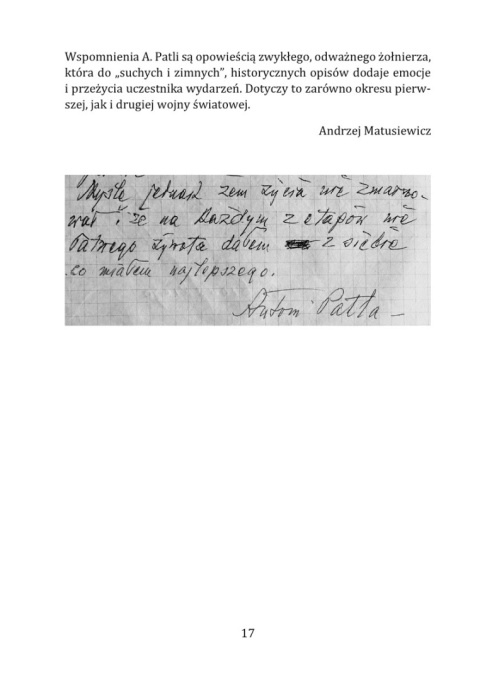 Wspomnienia A. Patli są opowieścią zwykłego, odważnego żołnierza,
która do „suchych i zimnych”, historycznych opisów dodaje emocje
i przeżycia uczestnika wydarzeń. Dotyczy to zarówno okresu pierw-
szej, jak i drugiej wojny światowej.
Andrzej Matusiewicz
Myślę jednak żem życia nie zmarno-
wał i że na każdym z etapów nie
łatwego żywota dałem z siebie
co miałem najlepszego.
Antoni Patla
17